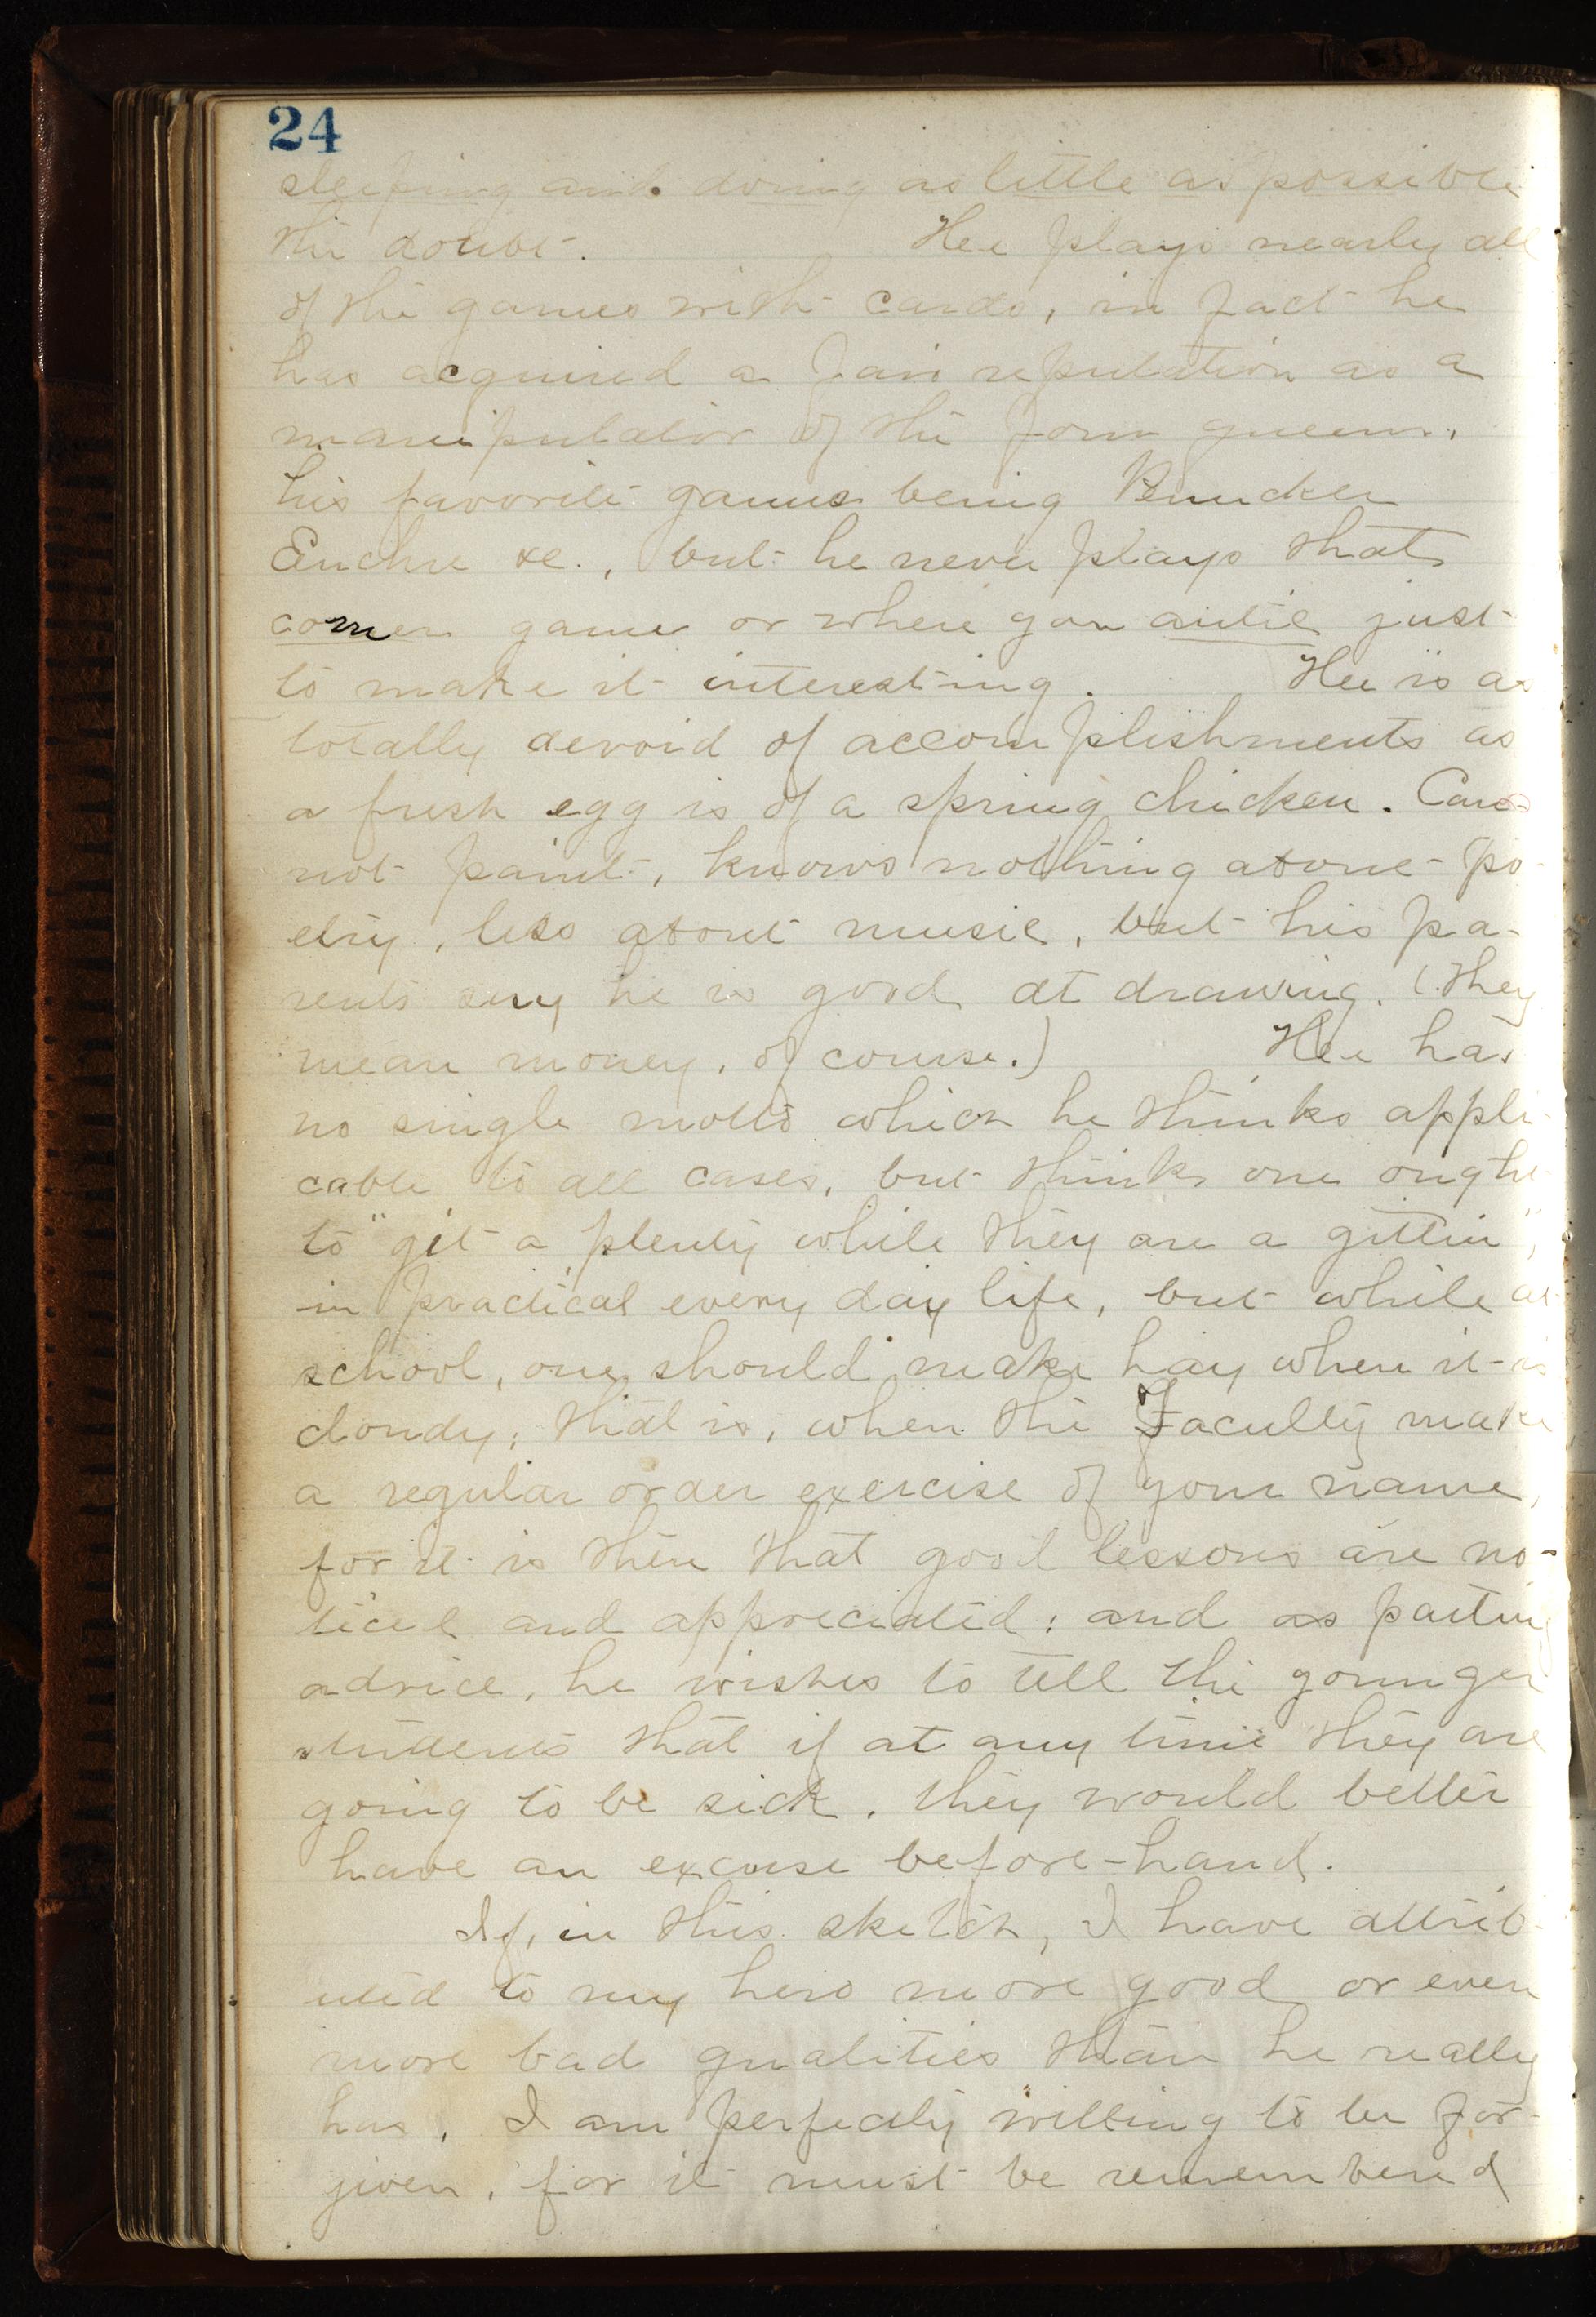 24
sleeping and doing as little as possible
the doubt. Hee plays nearly all
of the games with cards, in fact he
has acquired a fair reputation as a
manipulator of the four queens,
his favorite games being
Euchre &c., but he never plays that
corner game or where you antie just
to make it interesting. Hee is as
totally devoid of accomplishments as
a fresh egg is of a spring chicken. Can
not paint, knows nothing about po-
etry, less about music, but his pa-
rents say he is good at drawing. (They
mean money, of course.) Hee has
no single motto which he thinks appli-
cable to all cases, but thinks one ought
to "git a plenty while they are a gittin",
in practical every day life, but while at
school, one should make hay when it is
cloudy; that is, when the Faculty make
a regular order exercise of your name,
for it is then that good lessons are no-
ticed and appreciated; and as parting
advice, he wishes to tell the younger
students that if at any time they are
going to be sick, they would better
have an excuse before-hand.
If, in this sketch, I have attrib-
uted to my hero more good or even
more bad qualities than he really
has, I am perfectly willing to be for-
given, for it must be remembered